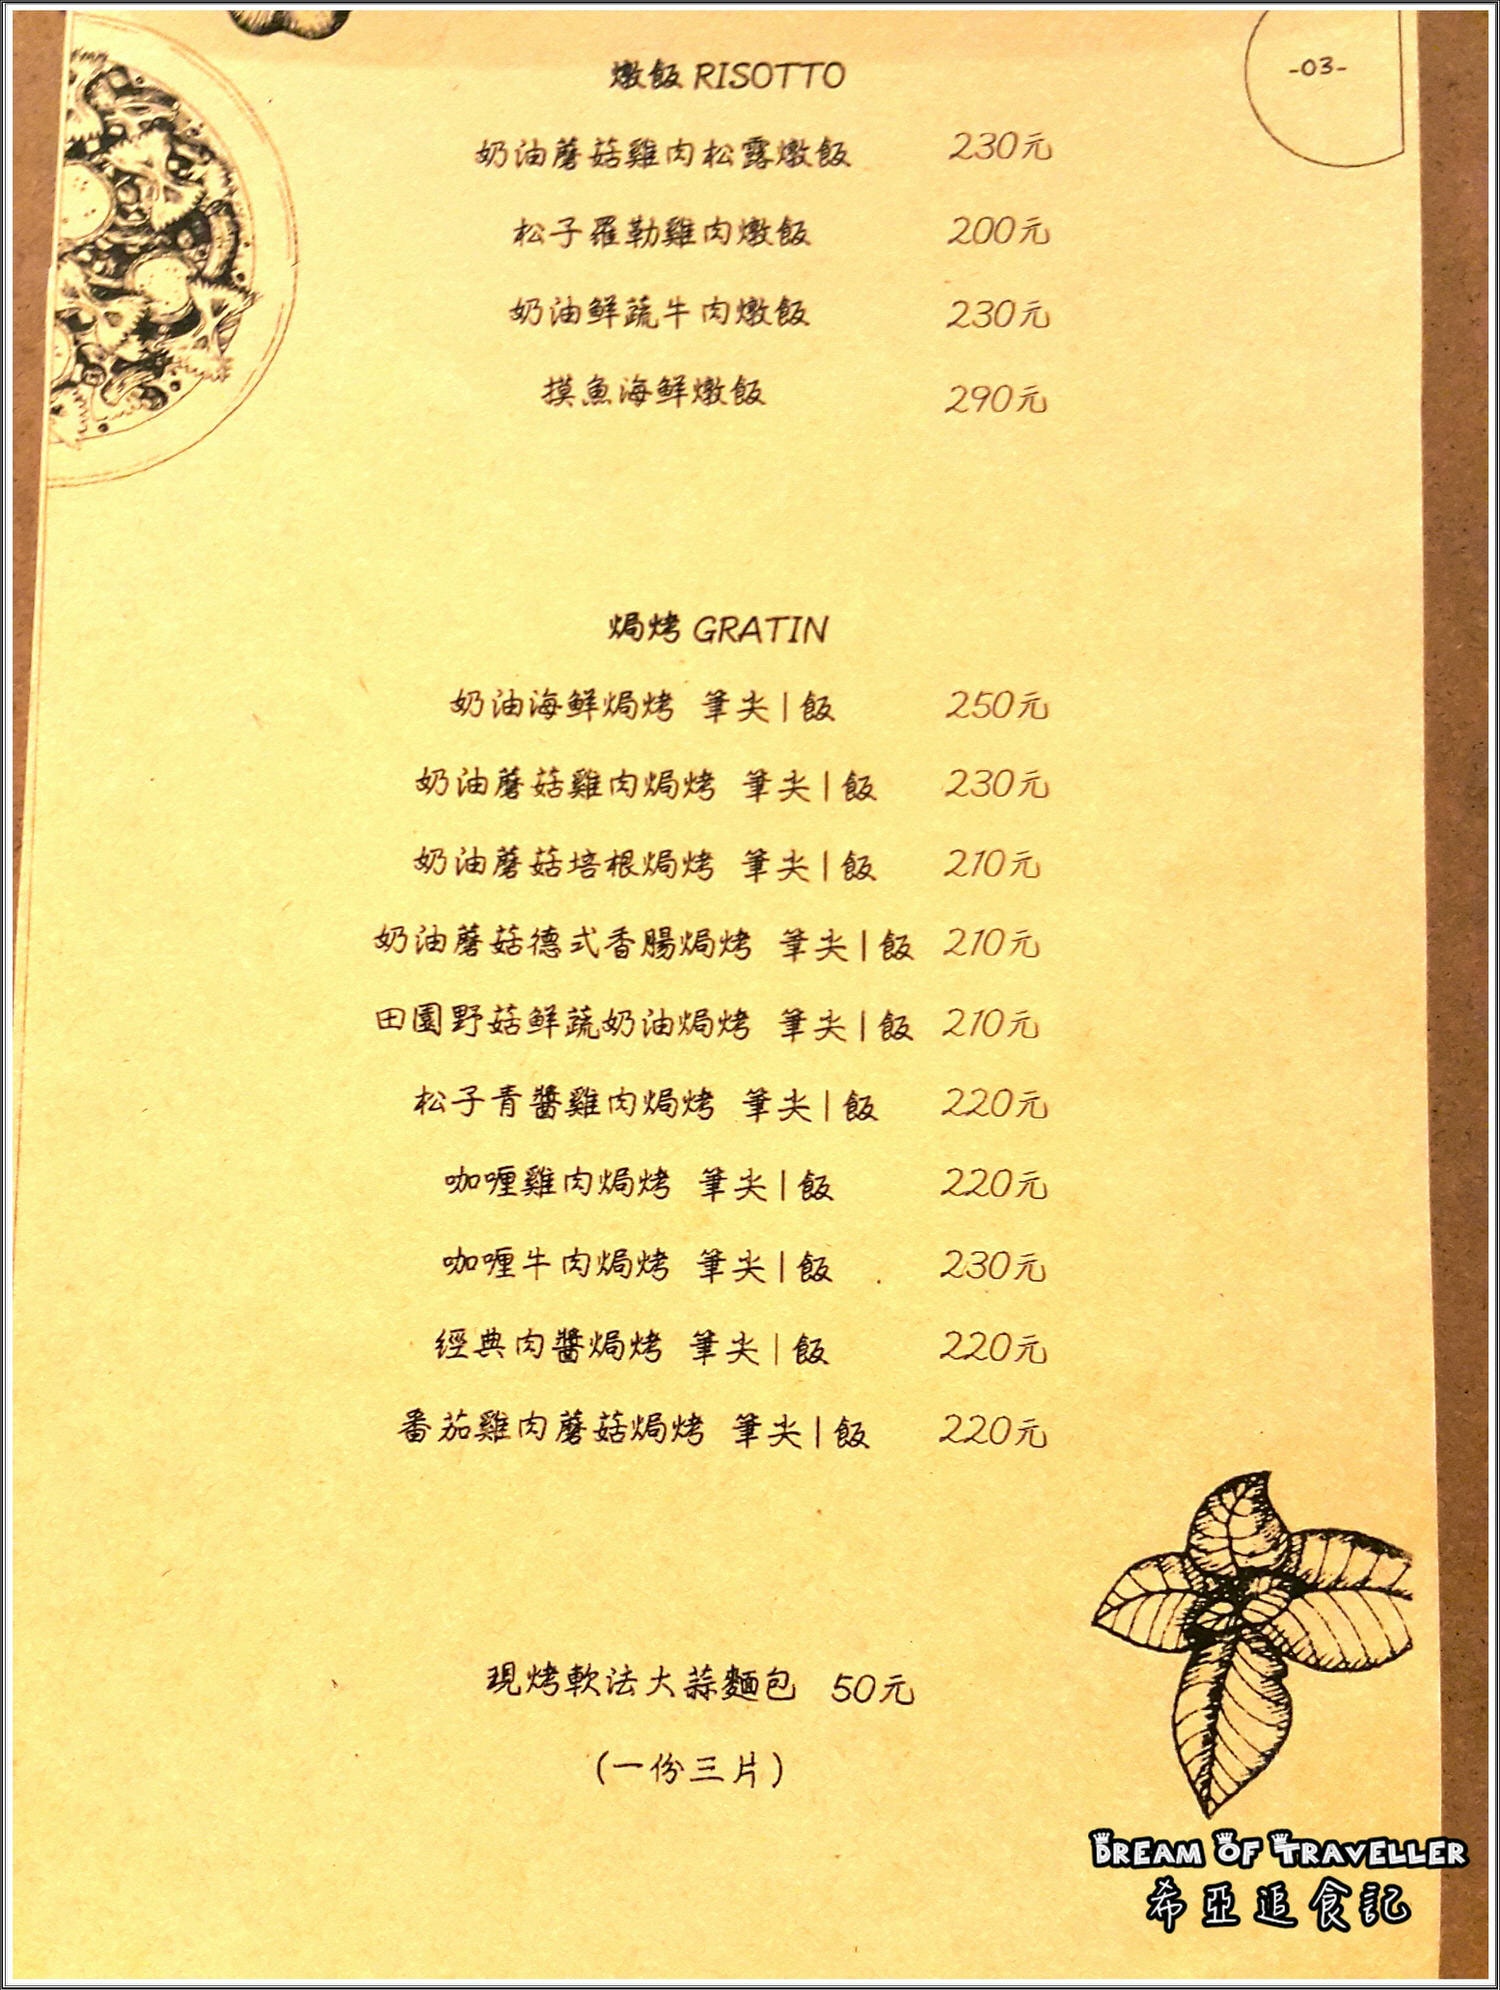 -03-
燉飯 RISOTTO
奶油蘑菇雞肉松露燉飯 230元
松子羅勒雞肉燉飯 200元
奶油鮮蔬牛肉燉飯 230元
摸魚海鮮燉飯 290元
焗烤 GRATIN
奶油海鮮焗烤 筆尖|飯 250元
奶油蘑菇雞肉焗烤 筆尖|飯 230元
奶油蘑菇培根焗烤 筆尖|飯 210元
奶油蘑菇德式香腸焗烤 筆尖|飯 210元
田園野菇鮮蔬奶油焗烤 筆尖|飯 210元
松子青醬雞肉焗烤 筆尖|飯 220元
咖喱雞肉焗烤 筆尖|飯 220元
咖喱牛肉焗烤 筆尖|飯 230元
經典肉醬焗烤 筆尖|飯 220元
番茄雞肉蘑菇焗烤 筆尖|飯 220元
現烤軟法大蒜麵包 50元
(一份三片)
DREAM OF TRAVELLER
希亞追食記